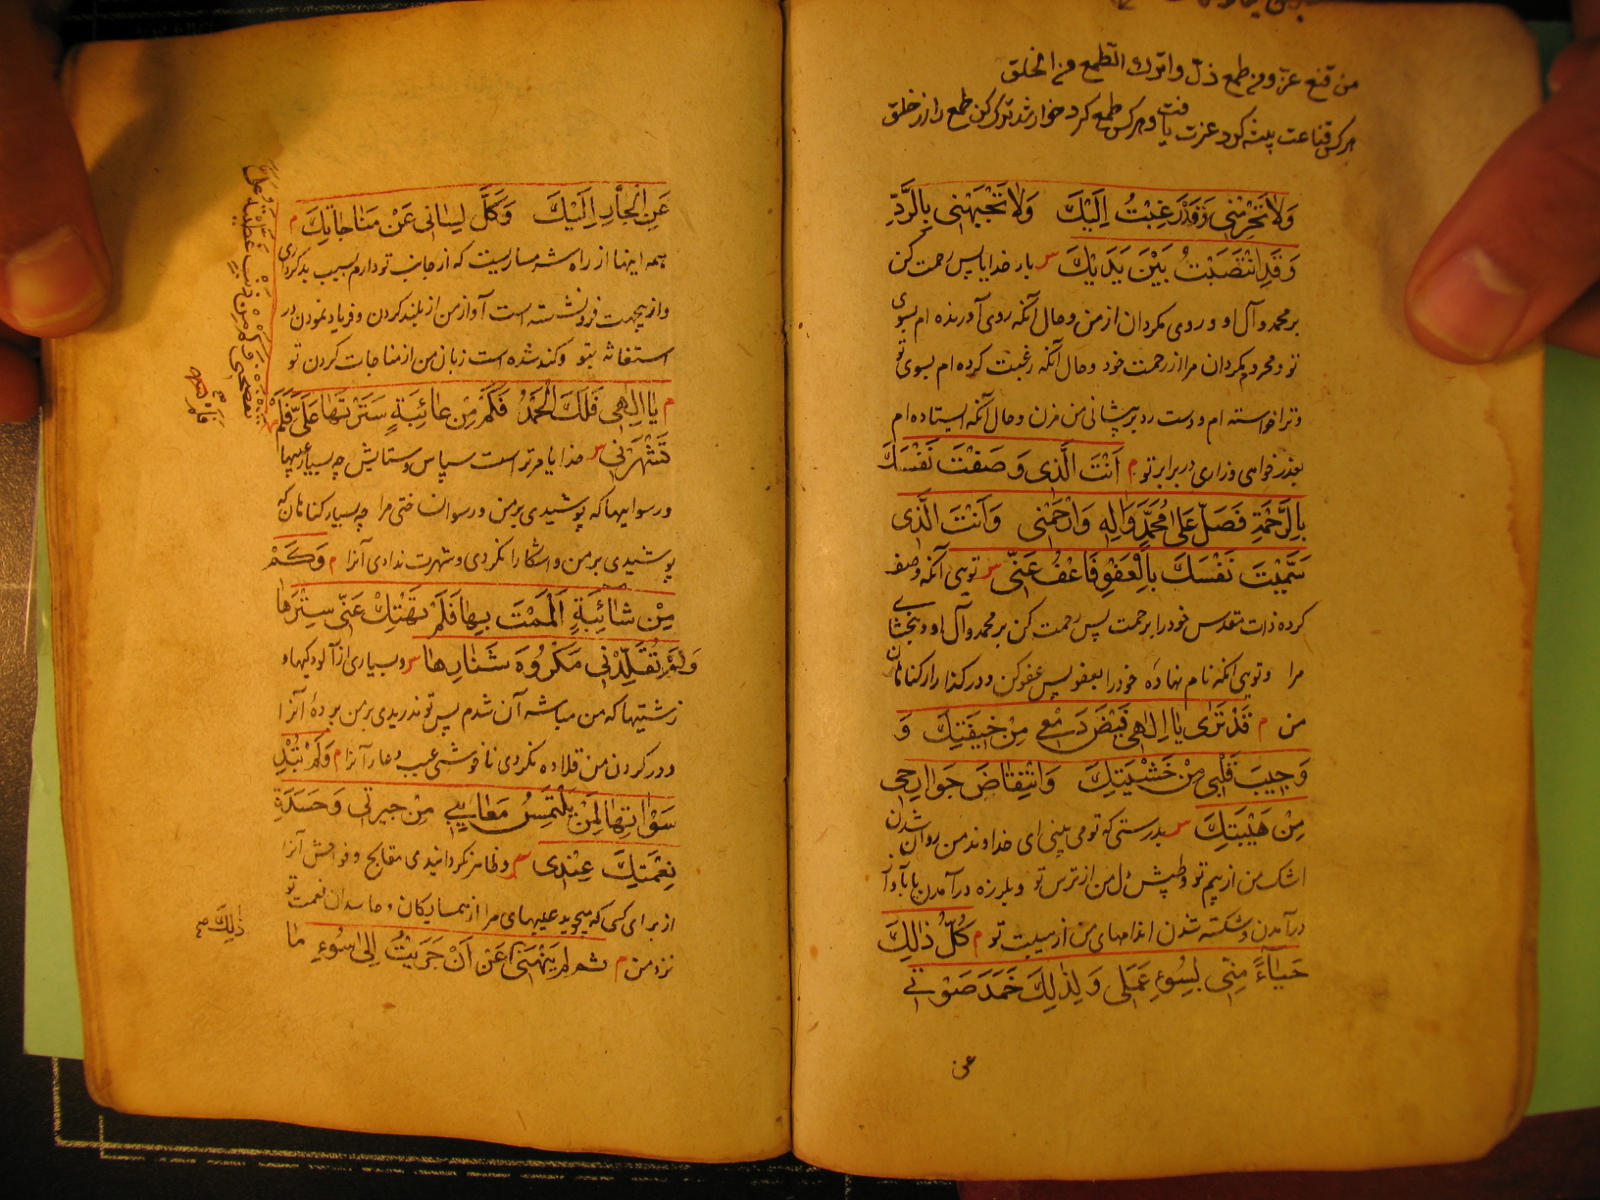 من قنع عزّ ومن طمع ذلّ واترك الطّمع من الخلق
هر کس قناعت پیشه کرد عزت یافت و هر کس طمع کرد خوار شد ترک کن طمع را از خلق
وَلا تَحْرِمْنی وَقَدْ رَغِبْتُ اِلَیْكَ وَلا تَجْبَهْنی بِالرَّدِّ
وَقَدِ انْتَصَبْتُ بَیْنَ یَدَیْكَ س بار خدایا پس رحمت کن
بر محمد و آل او و روی مکردان از من و حال آنکه روی آورنده ام بسوی
تو و محروم مکردان مرا از رحمت خود و حال آنکه رغبت کرده ام بسوی تو
و ترا خواسته ام و دست رد بر پیشانی من مزن و حال آنکه ایستاده ام
بعذر خواهی و زاری در برابر تو م اَنْتَ الَّذی وَصَفْتَ نَفْسَكَ
بِالرَّحْمَةِ فَصَلِّ عَلی مُحَمَّدٍ وَالِهِ وَارْحَمْنی وَاَنْتَ الَّذی
سَمَّیْتَ نَفْسَكَ بِالْعَفْوِ فَاعْفُ عَنّی س توئی آنکه وصف
کرده ذات مقدس خود را برحمت پس رحمت کن بر محمد و آل او و ببخشای
مرا و توئی انکه نام نهاده خود را بعفو پس عفو کن و در کذر از کناهان
من م قَدْ تَری یا اِلهی فَیْضَ دَمْعی مِنْ خیفَتِكَ وَ
وَجیبَ قَلْبی مِنْ خَشْیَتِكَ وَانْتِفاضَ جَوارِحی
مِنْ هَیْبَتِكَ س بدرستی که تو می بینی ای خداوند من روان شدن
اشك من از بیم تو و طپش دل من از ترس تو و بلرزه در آمدن
در آمدن و شکسته شدن اندامهای من از هیبت تو م کُلُّ ذلِكَ
حَیاءً مِنّی لِسُوءِ عَمَلی وَلِذلِكَ خَمَدَ صَوْتی
عن
عَنِ الْجَأْرِ اِلَیْكَ وَكَلَّ لِسانی عَنْ مُناجاتِكَ م
همه اینها از راه شرمساریست که از جانب تو دارم بسبب بد کرداری
و از یجهت فرو نشسته است آواز من از بلند کردن و فریاد نمودن در
استغاثه بتو و کند شده است زبان من از مناجات کردن تو
م یا اِلهی فَلَكَ الْحَمْدُ فَكَمْ مِنْ عائِبَةٍ سَتَرْتَها عَلَیَّ فَلَمْ
تَشْهَرْنی س خدایا مر تر است سپاس و ستایش چه بسیار عیبها
و رسوایهها که پوشیدی بر من و رسوا نساختی مرا چه بسیار کناهان که
پوشیدی بر من و اشکارا نکردی و شهرت ندادی آنرا م وَكَمْ
مِنْ شائِبَةٍ اَلْمَمْتُ بِها فَلَمْ تَهْتِكْ عَنّی سِتْرَها
وَلَمْ تُقَلِّدْنی مَكْرُوهَ شَنارِها س و بسیاری از آلودکیها و
زشتیها که من مباشر آن شدم پس تو ندریدی بر من پرده آنرا
و در کردن من قلاده نکردی ناخوشی عیب و عار آنرا م وَلَمْ تُبْدِ
سَوْاتِها لِمَنْ یَلْتَمِسُ مَعایِبی مِنْ جیرَتی وَحَسَدَةِ
نِعْمَتِكَ عِنْدی س و ظاهر نکردانیدی مقابح و فواحش آنرا
از برای کسی که میجوید عیبهای مرا از همسایکان و حاسدان نعمت تو
نزد من م ثُمَّ لَمْ یَنْهَنی عَنْ اَنْ جَرَیْتُ اِلی سُوءِ ما
ذلِكَ صح